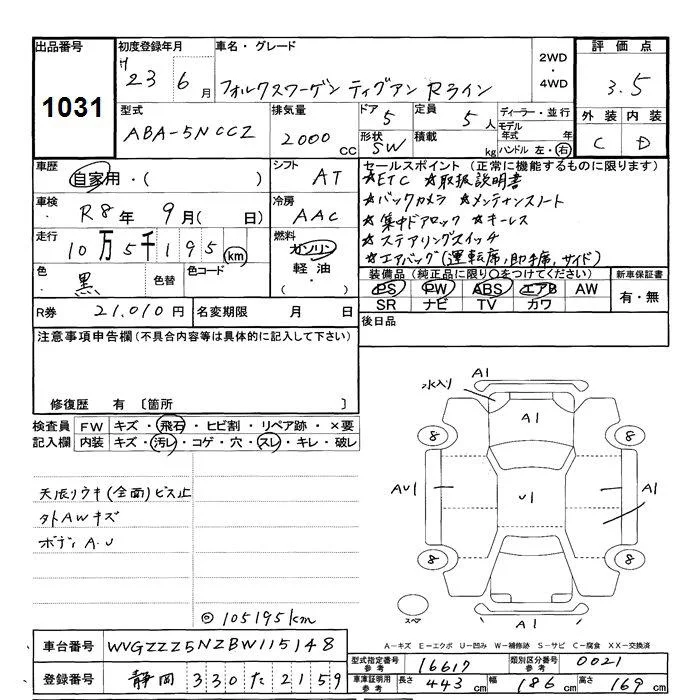 出品番号 1031
初度登録年月 H 23 6月
車名・グレード フォルクスワーゲン ティグアン Rライン
2WD・4WD
評価点 3.5
外装 内装
C D
型式 ABA-5NCCZ
排気量 2000 CC
ドア 5
形状 SW
定員 5人
積載 kg
ディーラー・並行
モデル年式 年
ハンドル 左・右
車歴 自家用・( )
シフト AT
車検 R8年 9月( 日)
冷房 AAC
走行 10万5千195 km
燃料 ガソリン 軽油 ( )
色 黒 色替 色コード
R券 21,010円 名変期限 月 日
セールスポイント(正常に機能するものに限ります)
☆ETC ☆取扱説明書
☆バックカメラ ☆メンテナンスノート
☆集中ドアロック ☆キーレス
☆ステアリングスイッチ
☆エアバッグ(運転席,助手席,サイド)
装備品(純正品に限り○をつけてください) 新車保証書
PS PW ABS エアB AW 有・無
SR ナビ TV カワ
後日品
注意事項申告欄(不具合内容等は具体的に記入して下さい)
修復歴 有 〔箇所 〕
検査員記入欄
FW キズ・飛石・ヒビ割・リペア跡・×要
内装 キズ・汚レ・コゲ・穴・スレ・キレ・破レ
天張リウキ(全面)ビス止
タトAWキズ
ボディA.U
◎105195km
水入リ A1
A1
8 8
AU1 U1 A1
8 8
スペア A1
A−キズ E−エクボ U−凹み W−補修跡 S−サビ C−腐食 XX−交換済
車台番号 WVGZZZ5NZBW115148
登録番号 静岡 330 た 2159
型式指定番号参考 16617 類別区分番号参考 0021
車庫証明用参考 長さ 443cm 幅 186cm 高さ 169cm